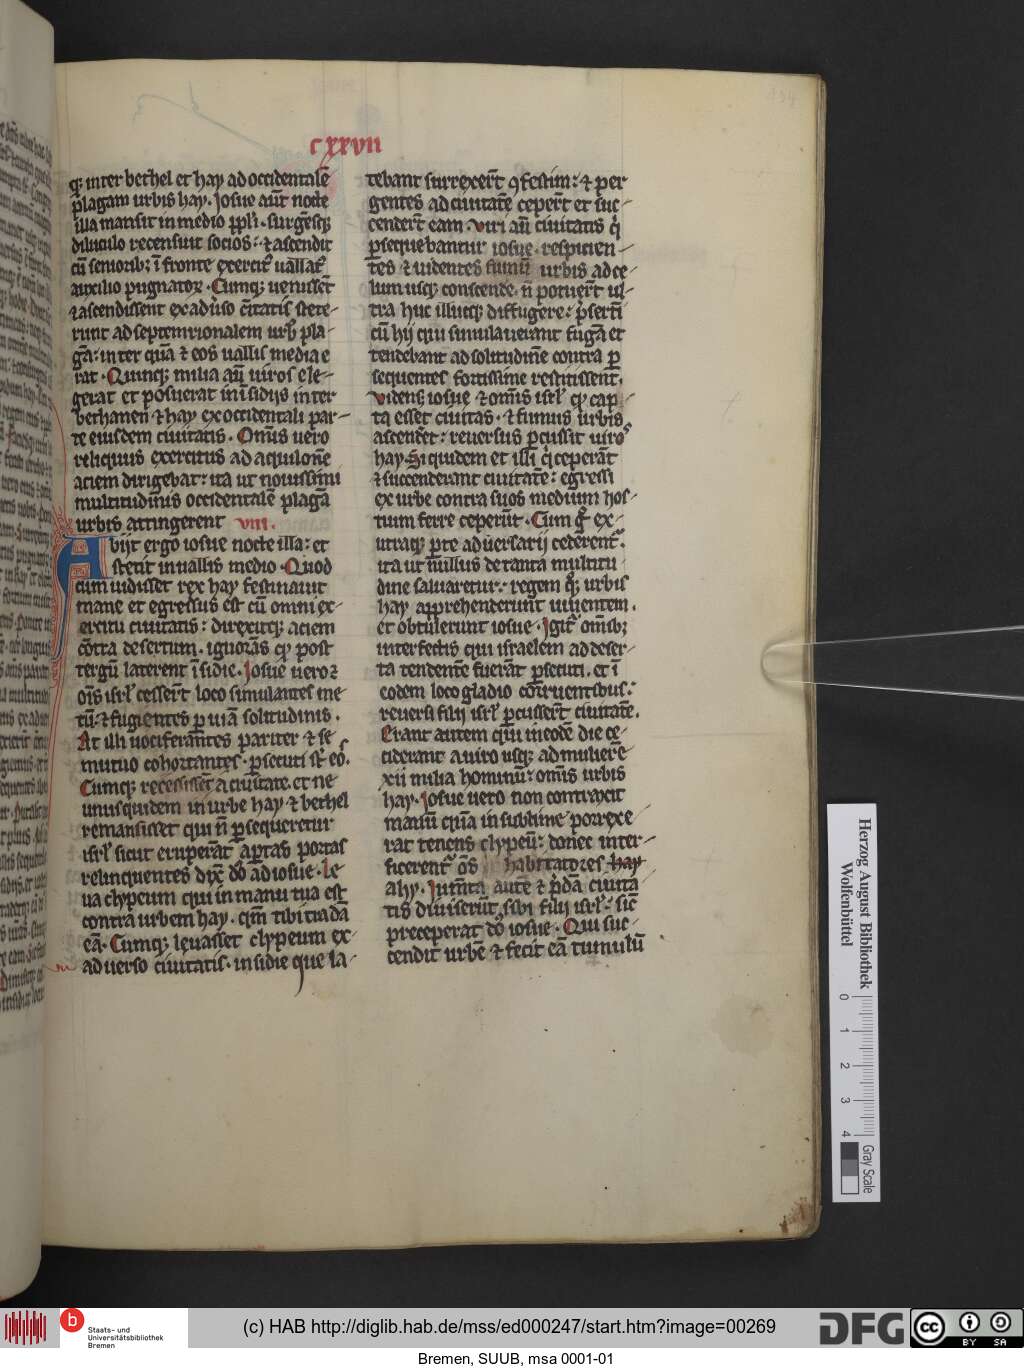 cxxvii
q; inter bethel et hay ad occidentalē
plagam urbis hay. Josue aūt nocte
illa mansit in medio ppl'i. surgēsq;
diluculo recensuit socios: ⁊ ascendit
cū seniorib; ī fronte exercit' uallat'
auxilio pugnator. Cumq; uenissēt
⁊ ascendissent ex aduso ciuitatis stete-
runt ad septemtrionalem urb' pla-
gā: inter quā ⁊ eos uallis media e
rat. Quinq; milia aū uiros ele-
gerat et posuerat in īsidijs inter
bethauen ⁊ hay ex occidentali par-
te eiusdem ciuitatis. Omīs uero
reliquus exercitus ad aquilonē
aciem dirigebat: ita ut nouissimi
multitudinis occidentalē plagā
urbis attingerent viii.
Abijt ergo iosue nocte illa: et
stetit in uallis medio. Quod
cum uidisset rex hay festinauit
mane et egressus est cū omni ex-
ercitu ciuitatis: direxitq; aciem
cōtra desertum. ignorās qp post
tergū laterent īsidie. Josue uero ⁊
oīs isrl' cesserūt loco simulantes me
tū: ⁊ fugientes p uiā solitudinis.
At illi uociferantes pariter ⁊ se
mutuo cohortantes. psecuti sūt eos.
Cumq; recessissēt a ciuitate. et ne
unus quidem in urbe hay ⁊ bethel
remansisset qui nō psequeretur
isrl' sicut eruperāt aptas portas
relinquentes dix' do' ad iosue. Le
ua clypeum qui in manu tua est
contra urbem hay. qm tibi tradā
eā. Cumq; leuasset clypeum ex-
aduerso ciuitatis. insidie que la-
tebant surrexerūt 9festim: ⁊ per
gentes ad ciuitatē ceperūt et suc-
cenderūt eam. Viri aū ciuitatis q'
psequebantur iosue. respicien-
tes ⁊ uidentes fumū urbis ad ce-
lum usq; conscende. nō potuerūt ul-
tra huc illucq; diffugere: psertī
cū hij qui simulauerant fugā et
tendebant ad solitudinē contra p
sequentes fortissime restitissent.
Videns iosue ⁊ omīs isrl' qp cap
ta esset ciuitas. ⁊ fumus urbis
ascenderet: reuersus pcussit uiros
hay. Siquidem et illi q' ceperāt
⁊ succenderant ciuitatē: egressi
ex urbe contra suos medium hos-
tium ferire ceperūt. Cum g' ex-
utraq; pte aduersarij cederent'.
ita ut nullus de tanta multitu
dine saluaretur: regem q;' urbis
hay apprehenderunt uiuentem.
et obtulerunt iosue. Igit' omīsb;
interfectis qui israelem ad deser-
ta tendentē fuerāt psecuti. et ī
eodem loco gladio corruentibus:
reuersi filij isrl' pcusserūt ciuitatē.
Erant autem qui in eodē die ce-
ciderant a uiro usq; ad mulierē
xii milia hominū: omīs urbis
hay. Josue uero non contraxit
manū quā in sublime porrexe
rat tenens clypeū: donec inter-
ficerent' oīs habitatores hay
ahy. Jumēta autē ⁊ p̄dā ciuita
tis diuiserūt sibi filij isrl': sic'
preceperat dō iosue. Qui suc
cendit urbē ⁊ fecit eā tumulū
Herzog August Bibliothek
Wolfenbüttel
0 1 2 3 4
Gray Scale
b Staats- und
Universitätsbibliothek
Bremen
(c) HAB http://diglib.hab.de/mss/ed000247/start.htm?image=00269
DFG
cc BY SA
Bremen, SUUB, msa 0001-01